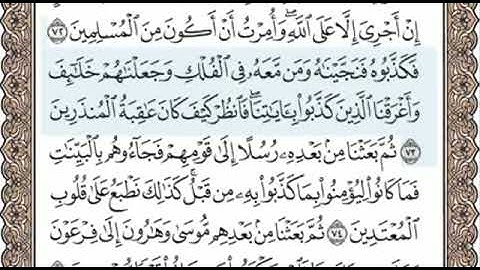 إِنْ أَجْرِىَ إِلَّا عَلَى ٱللَّهِ ۖ وَأُمِرْتُ أَنْ أَكُونَ مِنَ ٱلْمُسْلِمِينَ ٧٢
فَكَذَّبُوهُ فَنَجَّيْنَـٰهُ وَمَن مَّعَهُۥ فِى ٱلْفُلْكِ وَجَعَلْنَـٰهُمْ خَلَـٰٓئِفَ
وَأَغْرَقْنَا ٱلَّذِينَ كَذَّبُوا۟ بِـَٔايَـٰتِنَا ۖ فَٱنظُرْ كَيْفَ كَانَ عَـٰقِبَةُ ٱلْمُنذَرِينَ
٧٣ ثُمَّ بَعَثْنَا مِنۢ بَعْدِهِۦ رُسُلًا إِلَىٰ قَوْمِهِمْ فَجَآءُوهُم بِٱلْبَيِّنَـٰتِ
فَمَا كَانُوا۟ لِيُؤْمِنُوا۟ بِمَا كَذَّبُوا۟ بِهِۦ مِن قَبْلُ ۚ كَذَٰلِكَ نَطْبَعُ عَلَىٰ قُلُوبِ
ٱلْمُعْتَدِينَ ٧٤ ثُمَّ بَعَثْنَا مِنۢ بَعْدِهِم مُّوسَىٰ وَهَـٰرُونَ إِلَىٰ فِرْعَوْنَ